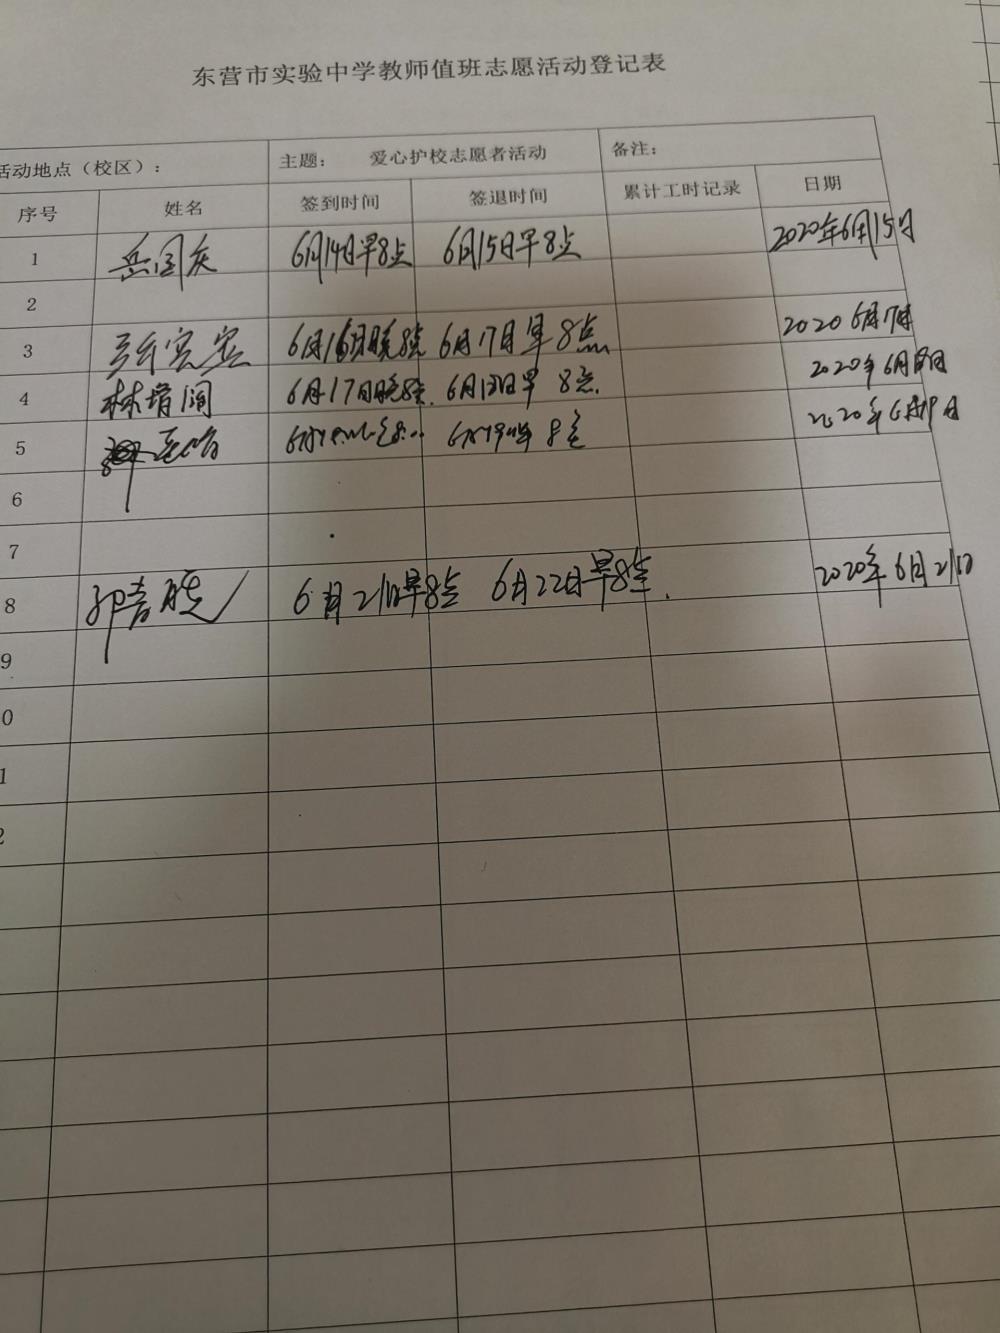 东营市实验中学教师值班志愿活动登记表
活动地点（校区）： 主题： 爱心护校志愿者活动 备注：
序号 姓名 签到时间 签退时间 累计工时记录 日期
1 岳国庆 6月14日早8点 6月15日早8点 2020年6月15日
2
3 6月16日晚8点 6月17日早8点 2020 6月17日
4 林增润 6月17日晚8点. 6月18日早 8点. 2020年6月18日
5 8点 2020年6月19日
6
7
8 6月21日早8点 6月22日早8点. 2020年6月21日
9
0
1
2